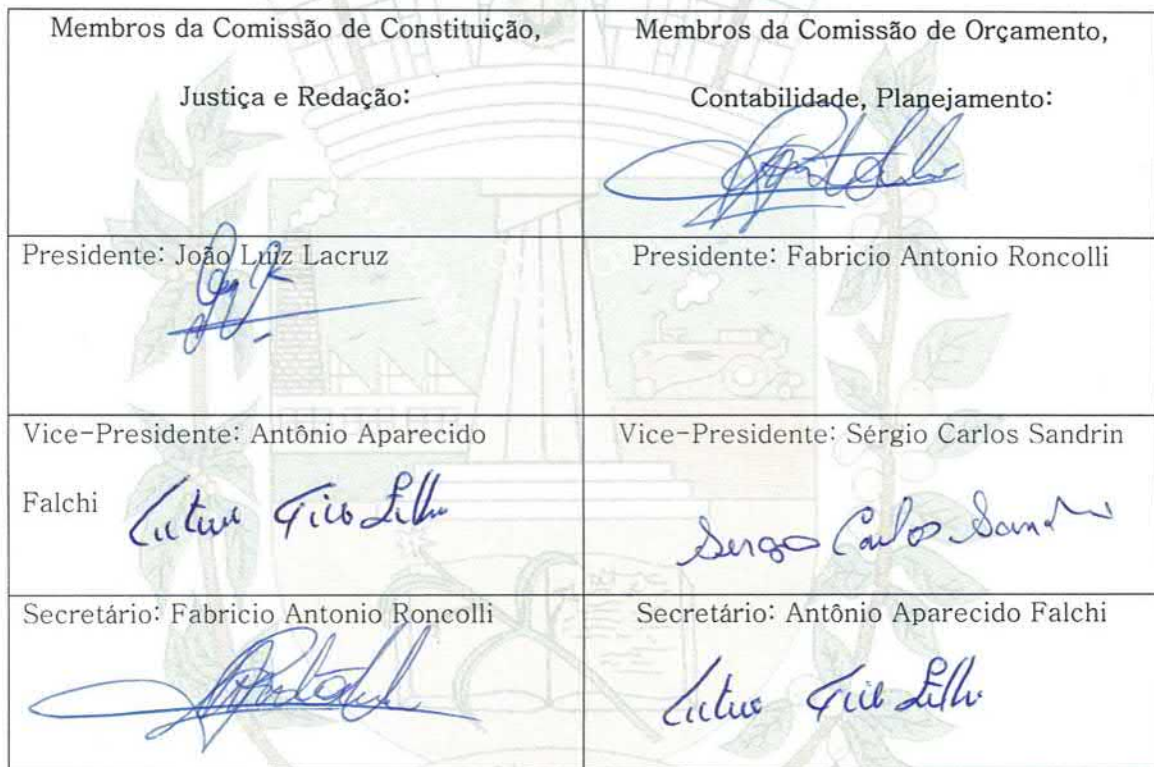 Membros da Comissão de Constituição,
Justiça e Redação:
Membros da Comissão de Orçamento,
Contabilidade, Planejamento:
Presidente: João Luiz Lacruz
Presidente: Fabricio Antonio Roncolli
Vice-Presidente: Antônio Aparecido
Falchi
Vice-Presidente: Sérgio Carlos Sandrin
Sergio Carlos Sandri
Secretário: Fabricio Antonio Roncolli
Secretário: Antônio Aparecido Falchi